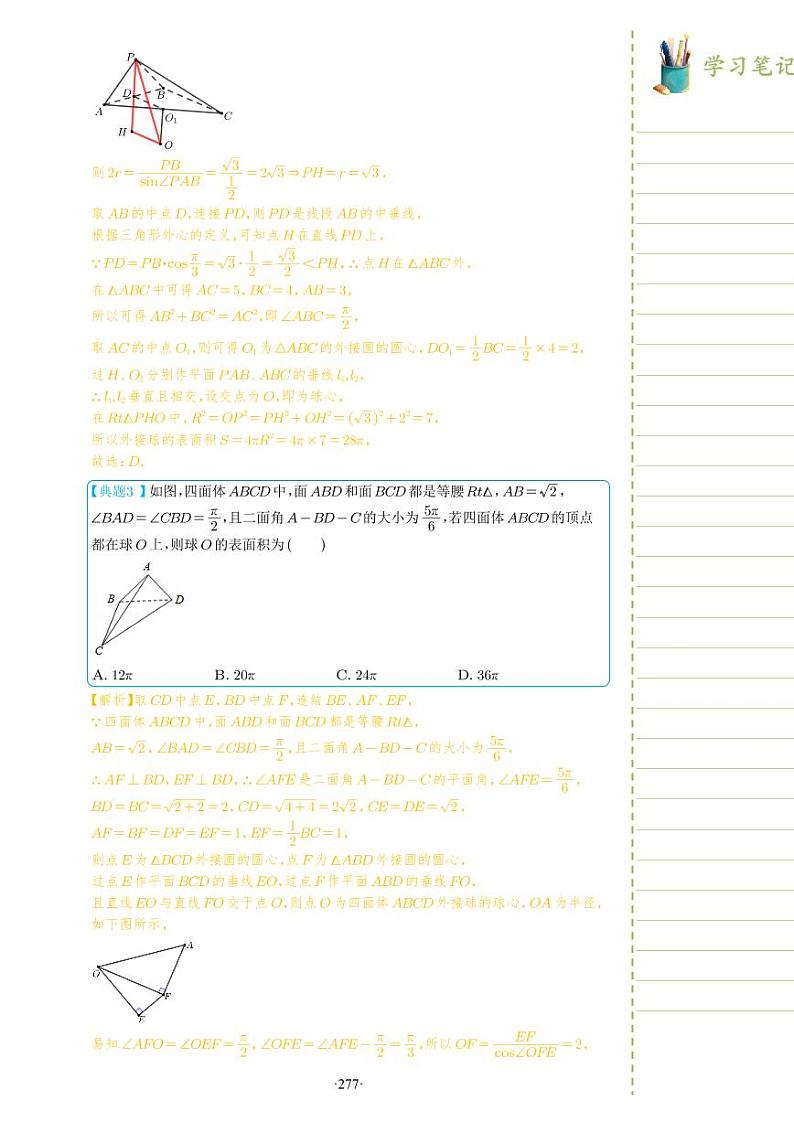 学习笔记
P
D
B
A
O₁
C
H
O
则2r=PB/sin∠PAB=√3/(1/2)=2√3⇒PH=r=√3,
取AB的中点D,连接PD,则PD是线段AB的中垂线,
根据三角形外心的定义,可知点H在直线PD上,
∵PD=PB•cosπ/3=√3·1/2=√3/2<PH,∴点H在△ABC外,
在△ABC中可得AC=5,BC=4,AB=3,
所以可得AB²+BC²=AC²,即∠ABC=π/2,
取AC的中点O₁,则可得O₁为△ABC的外接圆的圆心,DO₁=1/2BC=1/2×4=2,
过H、O₁分别作平面PAB、ABC的垂线l₁,l₂,
∴l₁,l₂垂直且相交,设交点为O,即为球心,
在Rt△PHO中,R²=OP²=PH²+OH²=(√3)²+2²=7,
所以外接球的表面积S=4πR²=4π×7=28π,
故选:D.
【典题3 】如图,四面体ABCD中,面ABD和面BCD都是等腰Rt△,AB=√2,
∠BAD=∠CBD=π/2,且二面角A-BD-C的大小为5π/6,若四面体ABCD的顶点
都在球O上,则球O的表面积为( )
A
B
D
C
A. 12π B. 20π C. 24π D. 36π
【解析】取CD中点E,BD中点F,连结BE、AF、EF,
∵四面体ABCD中,面ABD和面BCD都是等腰Rt△,
AB=√2,∠BAD=∠CBD=π/2,且二面角A-BD-C的大小为5π/6,
∴AF⊥BD,EF⊥BD,∴∠AFE是二面角A-BD-C的平面角,∠AFE=5π/6,
BD=BC=√(2+2)=2,CD=√(4+4)=2√2,CE=DE=√2,
AF=BF=DF=EF=1,EF=1/2BC=1,
则点E为△BCD外接圆的圆心,点F为△ABD外接圆的圆心,
过点E作平面BCD的垂线EO,过点F作平面ABD的垂线FO,
且直线EO与直线FO交于点O,则点O为四面体ABCD外接球的球心,OA为半径,
如下图所示,
A
O
F
E
易知∠AFO=∠OEF=π/2,∠OFE=∠AFE-π/2=π/3,所以OF=EF/cos∠OFE=2,
·277·